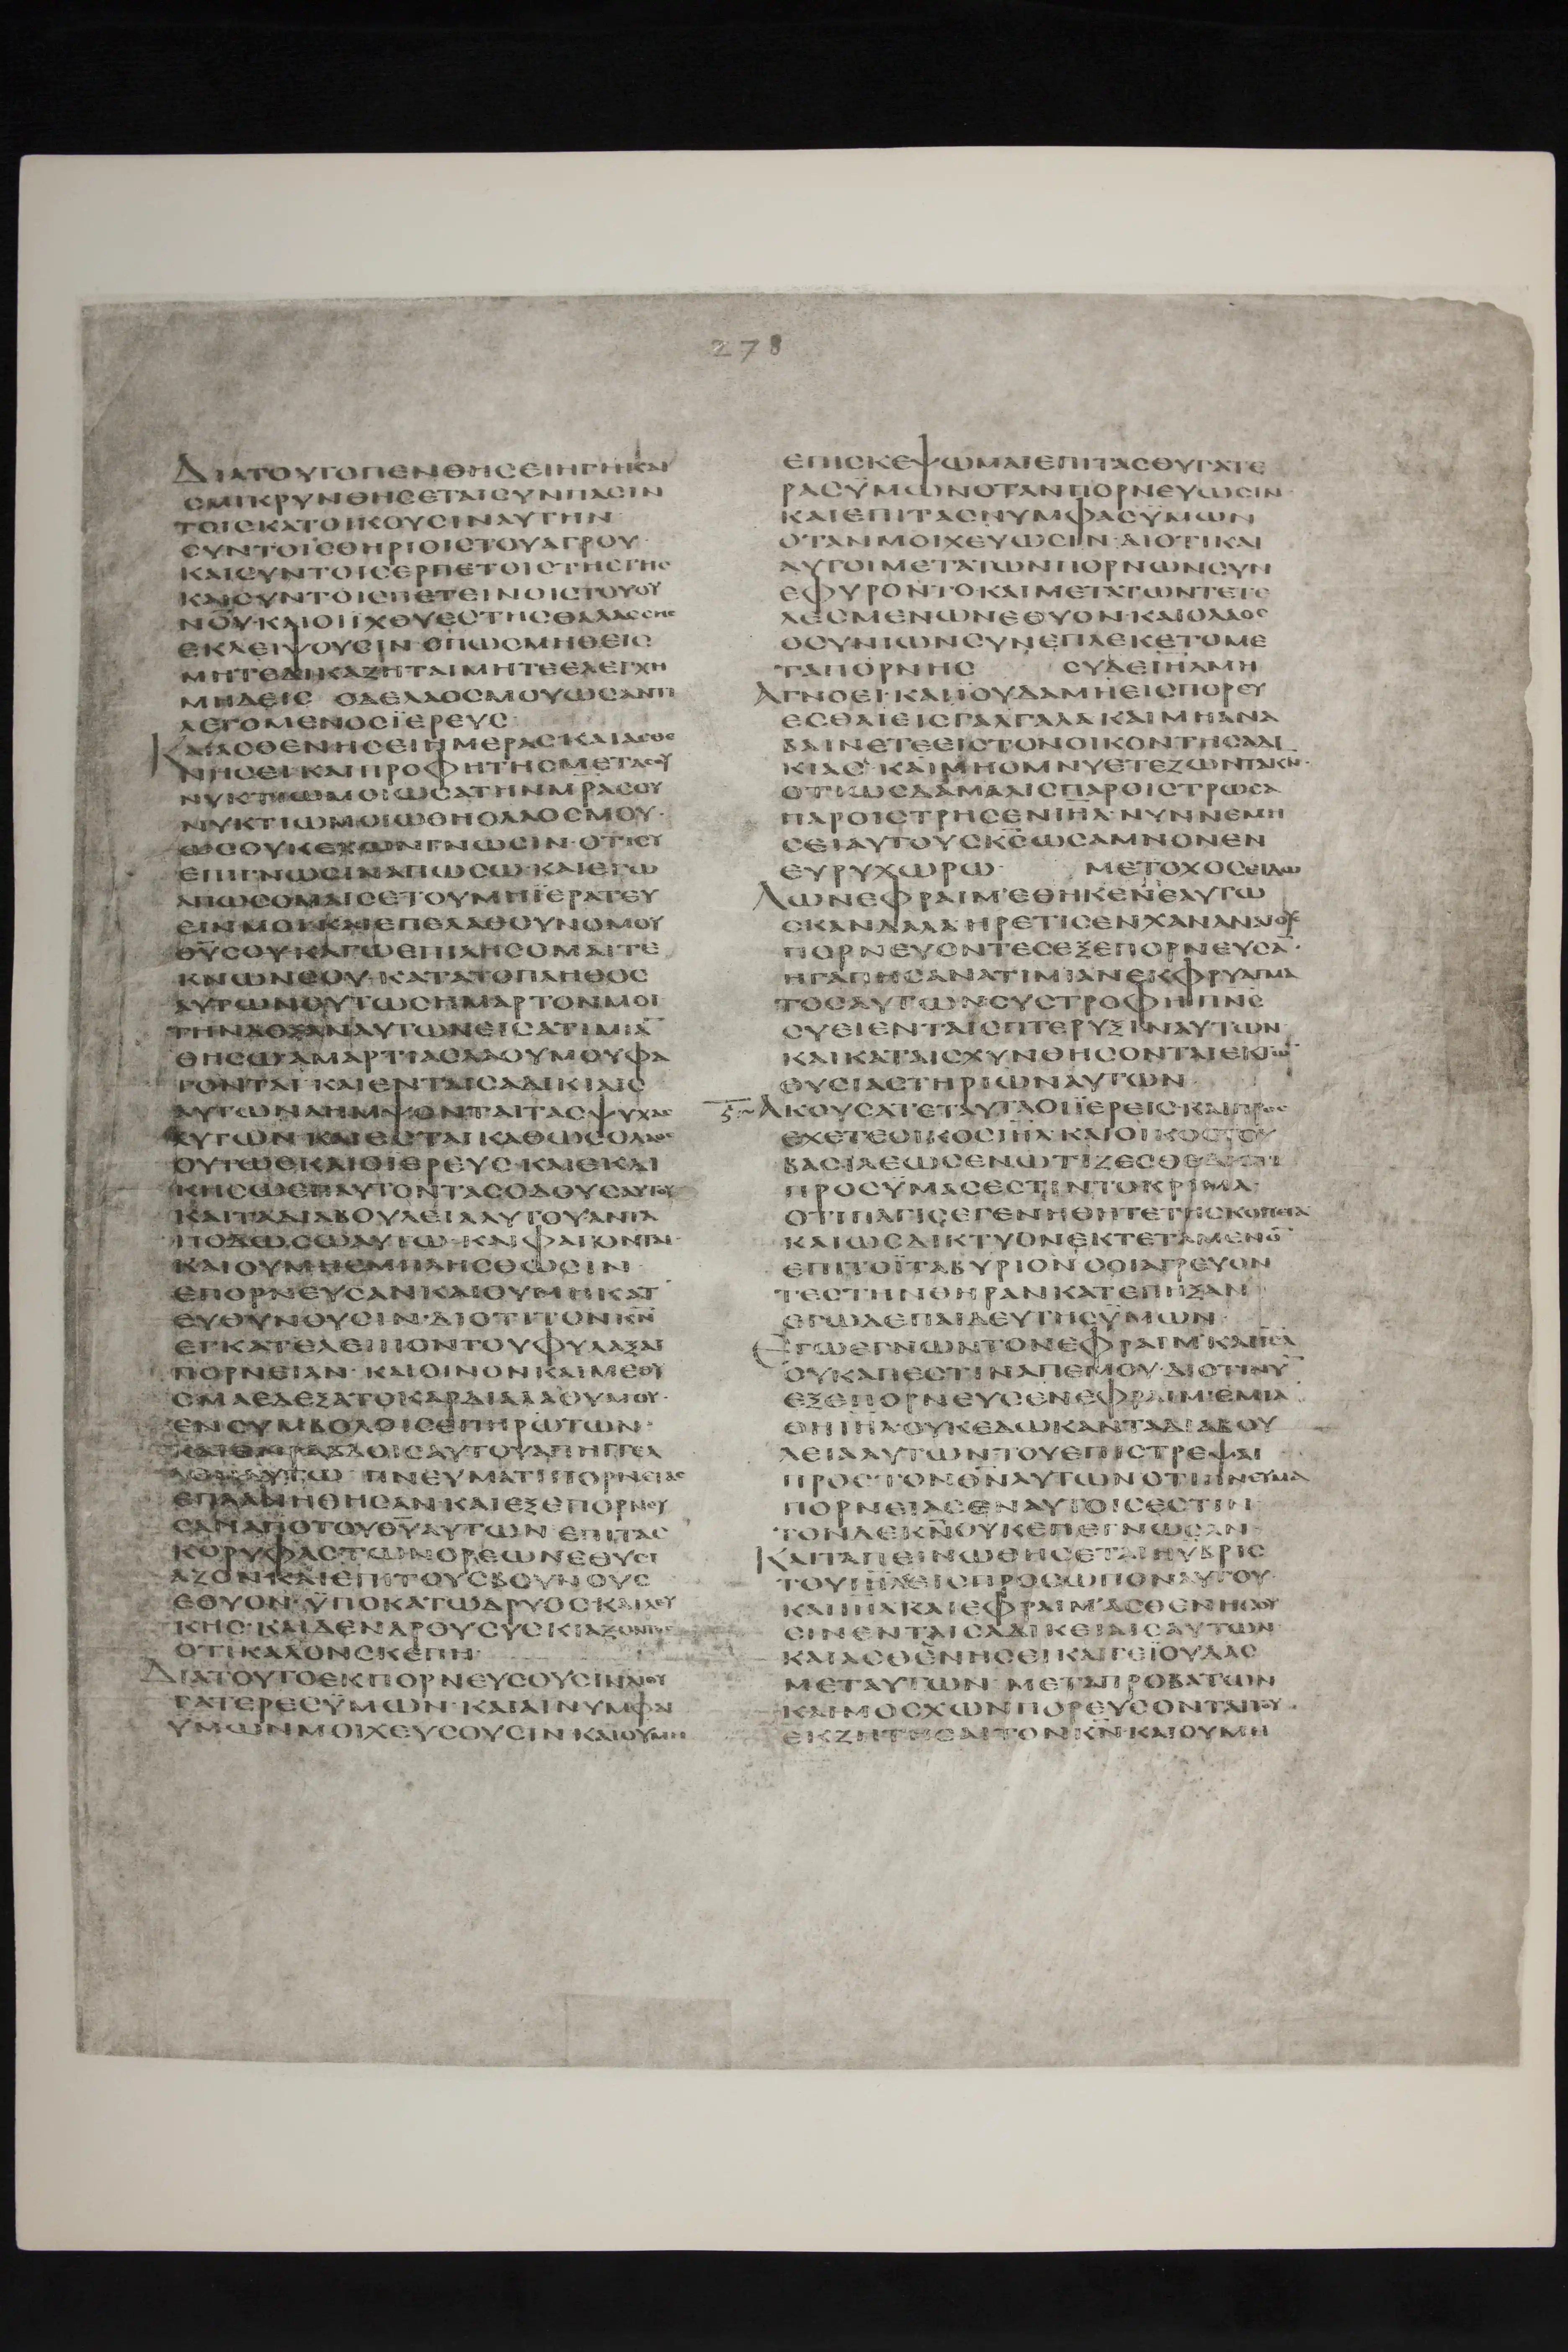 278
ΔΙΑΤΟΥΤΟΠΕΝΘΗΣΕΙΗΓΗΚΑΙ
ΣΜΙΚΡΥΝΘΗΣΕΤΑΙΣΥΝΠΑΣΙΝ
ΤΟΙΣΚΑΤΟΙΚΟΥΣΙΝΑΥΤΗΝ
ΣΥΝΤΟΙΣΘΗΡΙΟΙΣΤΟΥΑΓΡΟΥ·
ΚΑΙΣΥΝΤΟΙΣΕΡΠΕΤΟΙΣΤΗΣΓΗΣ
ΚΑΙΣΥΝΤΟΙΣΠΕΤΕΙΝΟΙΣΤΟΥΟΥ
ΝΟΥ·ΚΑΙΟΙΙΧΘΥΕΣΤΗΣΘΑΛΑΣΣΗΣ
ΕΚΛΕΙΨΟΥΣΙΝ ΟΠΩΣΜΗΘΕΙΣ
ΜΗΤΕΔΙΚΑΖΗΤΑΙΜΗΤΕΕΛΕΓΧΗ
ΜΗΔΕΙΣ ΟΔΕΛΑΟΣΜΟΥΩΣΑΝΤΙ
ΛΕΓΟΜΕΝΟΣΪΕΡΕΥΣ
ΚΑΙΑΣΘΕΝΗΣΕΙΗΜΕΡΑΣ·ΚΑΙΑΣΘΕ
ΝΗΣΕΙ·ΚΑΙΠΡΟΦΗΤΗΣΜΕΤΑΣΟΥ
ΝΥΚΤΙΩΜΟΙΩΣΑΤΗΝΜΡΑΣΟΥ
ΝΥΚΤΙΩΜΟΙΩΘΗΟΛΑΟΣΜΟΥ·
ΩΣΟΥΚΕΧΩΝΓΝΩΣΙΝ·ΟΤΙΣΥ
ΕΠΙΓΝΩΣΙΝΑΠΩΣΩ·ΚΑΙΕΓΩ
ΑΠΩΣΟΜΑΙΣΕΤΟΥΜΗΪΕΡΑΤΕΥ
ΕΙΝΜΟΙ·ΚΑΙΕΠΕΛΑΘΟΥΝΟΜΟΥ
ΘΥΣΟΥ·ΚΑΓΩΕΠΙΛΗΣΟΜΑΙΤΕ
ΚΝΩΝΣΟΥ·ΚΑΤΑΤΟΠΛΗΘΟΣ
ΑΥΤΩΝΟΥΤΩΣΗΜΑΡΤΟΝΜΟΙ
ΤΗΝΔΟΞΑΝΑΥΤΩΝΕΙΣΑΤΙΜΙΑ
ΘΗΣΩ·ΑΜΑΡΤΙΑΣΛΑΟΥΜΟΥΦΑ
ΓΟΝΤΑΙ·ΚΑΙΕΝΤΑΙΣΑΔΙΚΙΑΙΣ
ΑΥΤΩΝΛΗΜΨΟΝΤΑΙΤΑΣΨΥΧΑΣ
ΑΥΤΩΝ·ΚΑΙΕΣΤΑΙΚΑΘΩΣΟΛΑΟΣ
ΟΥΤΩΣΚΑΙΟΙΕΡΕΥΣ·ΚΑΙΕΚΔΙ
ΚΗΣΩΕΠΑΥΤΟΝΤΑΣΟΔΟΥΣΑΥΤΟΥ
ΚΑΙΤΑΔΙΑΒΟΥΛΕΙΑΑΥΤΟΥΑΝΤΑ
ΠΟΔΩΣΩΑΥΤΩ·ΚΑΙΦΑΓΟΝΤΑΙ·
ΚΑΙΟΥΜΗΕΜΠΛΗΣΘΩΣΙΝ
ΕΠΟΡΝΕΥΣΑΝΚΑΙΟΥΜΗΚΑΤ
ΕΥΘΥΝΟΥΣΙΝ·ΔΙΟΤΙΤΟΝΚΝ
ΕΓΚΑΤΕΛΕΙΠΟΝΤΟΥΦΥΛΑΞΑΙ
ΠΟΡΝΕΙΑΝ·ΚΑΙΟΙΝΟΝΚΑΙΜΕΘΥ
ΣΜΑΕΔΕΞΑΤΟΚΑΡΔΙΑΛΑΟΥΜΟΥ·
ΕΝΣΥΜΒΟΛΟΙΣΕΠΗΡΩΤΩΝ·
ΚΑΙΕΝΡΑΒΔΟΙΣΑΥΤΟΥΑΠΗΓΓΕΛ
ΛΟΝΑΥΤΩ ΠΝΕΥΜΑΤΙΠΟΡΝΕΙΑΣ
ΕΠΛΑΝΗΘΗΣΑΝ·ΚΑΙΕΞΕΠΟΡΝΕΥ
ΣΑΝΑΠΟΤΟΥΘΥΑΥΤΩΝ ΕΠΙΤΑΣ
ΚΟΡΥΦΑΣΤΩΝΟΡΕΩΝΕΘΥΣΙ
ΑΖΟΝ·ΚΑΙΕΠΙΤΟΥΣΒΟΥΝΟΥΣ
ΕΘΥΟΝ·ΫΠΟΚΑΤΩΔΡΥΟΣ·ΚΑΙΛΕΥ
ΚΗΣ·ΚΑΙΔΕΝΔΡΟΥΣΥΣΚΙΑΖΟΝΤΟΣ
ΟΤΙΚΑΛΟΝΣΚΕΠΗ·
ΔΙΑΤΟΥΤΟΕΚΠΟΡΝΕΥΣΟΥΣΙΝΑΙΘΥ
ΓΑΤΕΡΕΣΫΜΩΝ·ΚΑΙΑΙΝΥΜΦΑΙ
ΥΜΩΝΜΟΙΧΕΥΣΟΥΣΙΝ·ΚΑΙΟΥΜΗ
ΕΠΙΣΚΕΨΩΜΑΙΕΠΙΤΑΣΘΥΓΑΤΕ
ΡΑΣΫΜΩΝΟΤΑΝΠΟΡΝΕΥΩΣΙΝ·
ΚΑΙΕΠΙΤΑΣΝΥΜΦΑΣΫΜΩΝ
ΟΤΑΝΜΟΙΧΕΥΩΣΙΝ·ΔΙΟΤΙΚΑΙ
ΑΥΤΟΙΜΕΤΑΤΩΝΠΟΡΝΩΝΣΥΝ
ΕΦΥΡΟΝΤΟΚΑΙΜΕΤΑΤΩΝΤΕΤΕ
ΛΕΣΜΕΝΩΝΕΘΥΟΝ·ΚΑΙΟΛΑΟΣ
ΟΣΥΝΙΩΝΣΥΝΕΠΛΕΚΕΤΟΜΕ
ΤΑΠΟΡΝΗΣ ΣΥΔΕΙΗΛΜΗ
ΑΓΝΟΕΙ·ΚΑΙΪΟΥΔΑΜΗΕΙΣΠΟΡΕΥ
ΕΣΘΑΙΕΙΣΓΑΛΓΑΛΑΚΑΙΜΗΑΝΑ
ΒΑΙΝΕΤΕΕΙΣΤΟΝΟΙΚΟΝΤΗΣΑΔΙ
ΚΙΑΣ·ΚΑΙΜΗΟΜΝΥΕΤΕΖΩΝΤΑΚΝ·
ΟΤΙΩΣΔΑΜΑΛΙΣΠΑΡΟΙΣΤΡΩΣΑ
ΠΑΡΟΙΣΤΡΗΣΕΝΙΗΛ·ΝΥΝΝΕΜΗ
ΣΕΙΑΥΤΟΥΣΚΣΩΣΑΜΝΟΝΕΝ
ΕΥΡΥΧΩΡΩ· ΜΕΤΟΧΟΣΕΙΔΩ
ΛΩΝΕΦΡΑΙΜ·ΕΘΗΚΕΝΕΑΥΤΩ
ΣΚΑΝΔΑΛΑ·ΗΡΕΤΙΣΕΝΧΑΝΑΝΑΙΟΥΣ
ΠΟΡΝΕΥΟΝΤΕΣΕΞΕΠΟΡΝΕΥΣΑ·
ΗΓΑΠΗΣΑΝΑΤΙΜΙΑΝΕΚΦΡΥΑΓΜΑ
ΤΟΣΑΥΤΩΝ·ΣΥΣΤΡΟΦΗΠΝΣ
ΣΥΕΙΕΝΤΑΙΣΠΤΕΡΥΞΙΝΑΥΤΩΝ
ΚΑΙΚΑΤΑΙΣΧΥΝΘΗΣΟΝΤΑΙΕΚΤΩ
ΘΥΣΙΑΣΤΗΡΙΩΝΑΥΤΩΝ
ΑΚΟΥΣΑΤΕΤΑΥΤΑΟΙΪΕΡΕΙΣ·ΚΑΙΠΡΟΣ
ΕΧΕΤΕΟΙΚΟΣΙΗΛ·ΚΑΙΟΙΚΟΣΤΟΥ
ΒΑΣΙΛΕΩΣΕΝΩΤΙΖΕΣΘΕΔΙΟΤΙ
ΠΡΟΣΫΜΑΣΕΣΤΙΝΤΟΚΡΙΜΑ·
ΟΤΙΠΑΓΙΣΕΓΕΝΗΘΗΤΕΤΗΣΚΟΠΕΙΑ
ΚΑΙΩΣΔΙΚΤΥΟΝΕΚΤΕΤΑΜΕΝΟ
ΕΠΙΤΟΪΤΑΒΥΡΙΟΝ·ΟΟΙΑΓΡΕΥΟΝ
ΤΕΣΤΗΝΘΗΡΑΝΚΑΤΕΠΗΞΑΝ
ΕΓΩΔΕΠΑΙΔΕΥΤΗΣΫΜΩΝ·
ΕΓΩΕΓΝΩΝΤΟΝΕΦΡΑΙΜ·ΚΑΙΙΗΛ
ΟΥΚΑΠΕΣΤΙΝΑΠΕΜΟΥ·ΔΙΟΤΙΝΥ
ΕΞΕΠΟΡΝΕΥΣΕΝΕΦΡΑΙΜ·ΕΜΙΑ
ΘΗΙΗΛ·ΟΥΚΕΔΩΚΑΝΤΑΔΙΑΒΟΥ
ΛΕΙΑΑΥΤΩΝ·ΤΟΥΕΠΙΣΤΡΕΨΑΙ
ΠΡΟΣΤΟΝΘΝΑΥΤΩΝΟΤΙΠΝΕΥΜΑ
ΠΟΡΝΕΙΑΣΕΝΑΥΤΟΙΣΕΣΤΙΝ·
ΤΟΝΔΕΚΝΟΥΚΕΠΕΓΝΩΣΑΝ
ΚΑΙΤΑΠΕΙΝΩΘΗΣΕΤΑΙΗΫΒΡΙΣ
ΤΟΥΙΗΛΕΙΣΠΡΟΣΩΠΟΝΑΥΤΟΥ·
ΚΑΙΙΗΛΚΑΙΕΦΡΑΙΜ·ΑΣΘΕΝΗΣΟΥ
ΣΙΝΕΝΤΑΙΣΑΔΙΚΕΙΑΙΣΑΥΤΩΝ
ΚΑΙΑΣΘΕΝΗΣΕΙΚΑΙΓΕΪΟΥΔΑΣ
ΜΕΤΑΥΤΩΝ·ΜΕΤΑΠΡΟΒΑΤΩΝ
ΚΑΙΜΟΣΧΩΝΠΟΡΕΥΣΟΝΤΑΙΤΟΥ
ΕΚΖΗΤΗΣΑΙΤΟΝΚΝ·ΚΑΙΟΥΜΗ